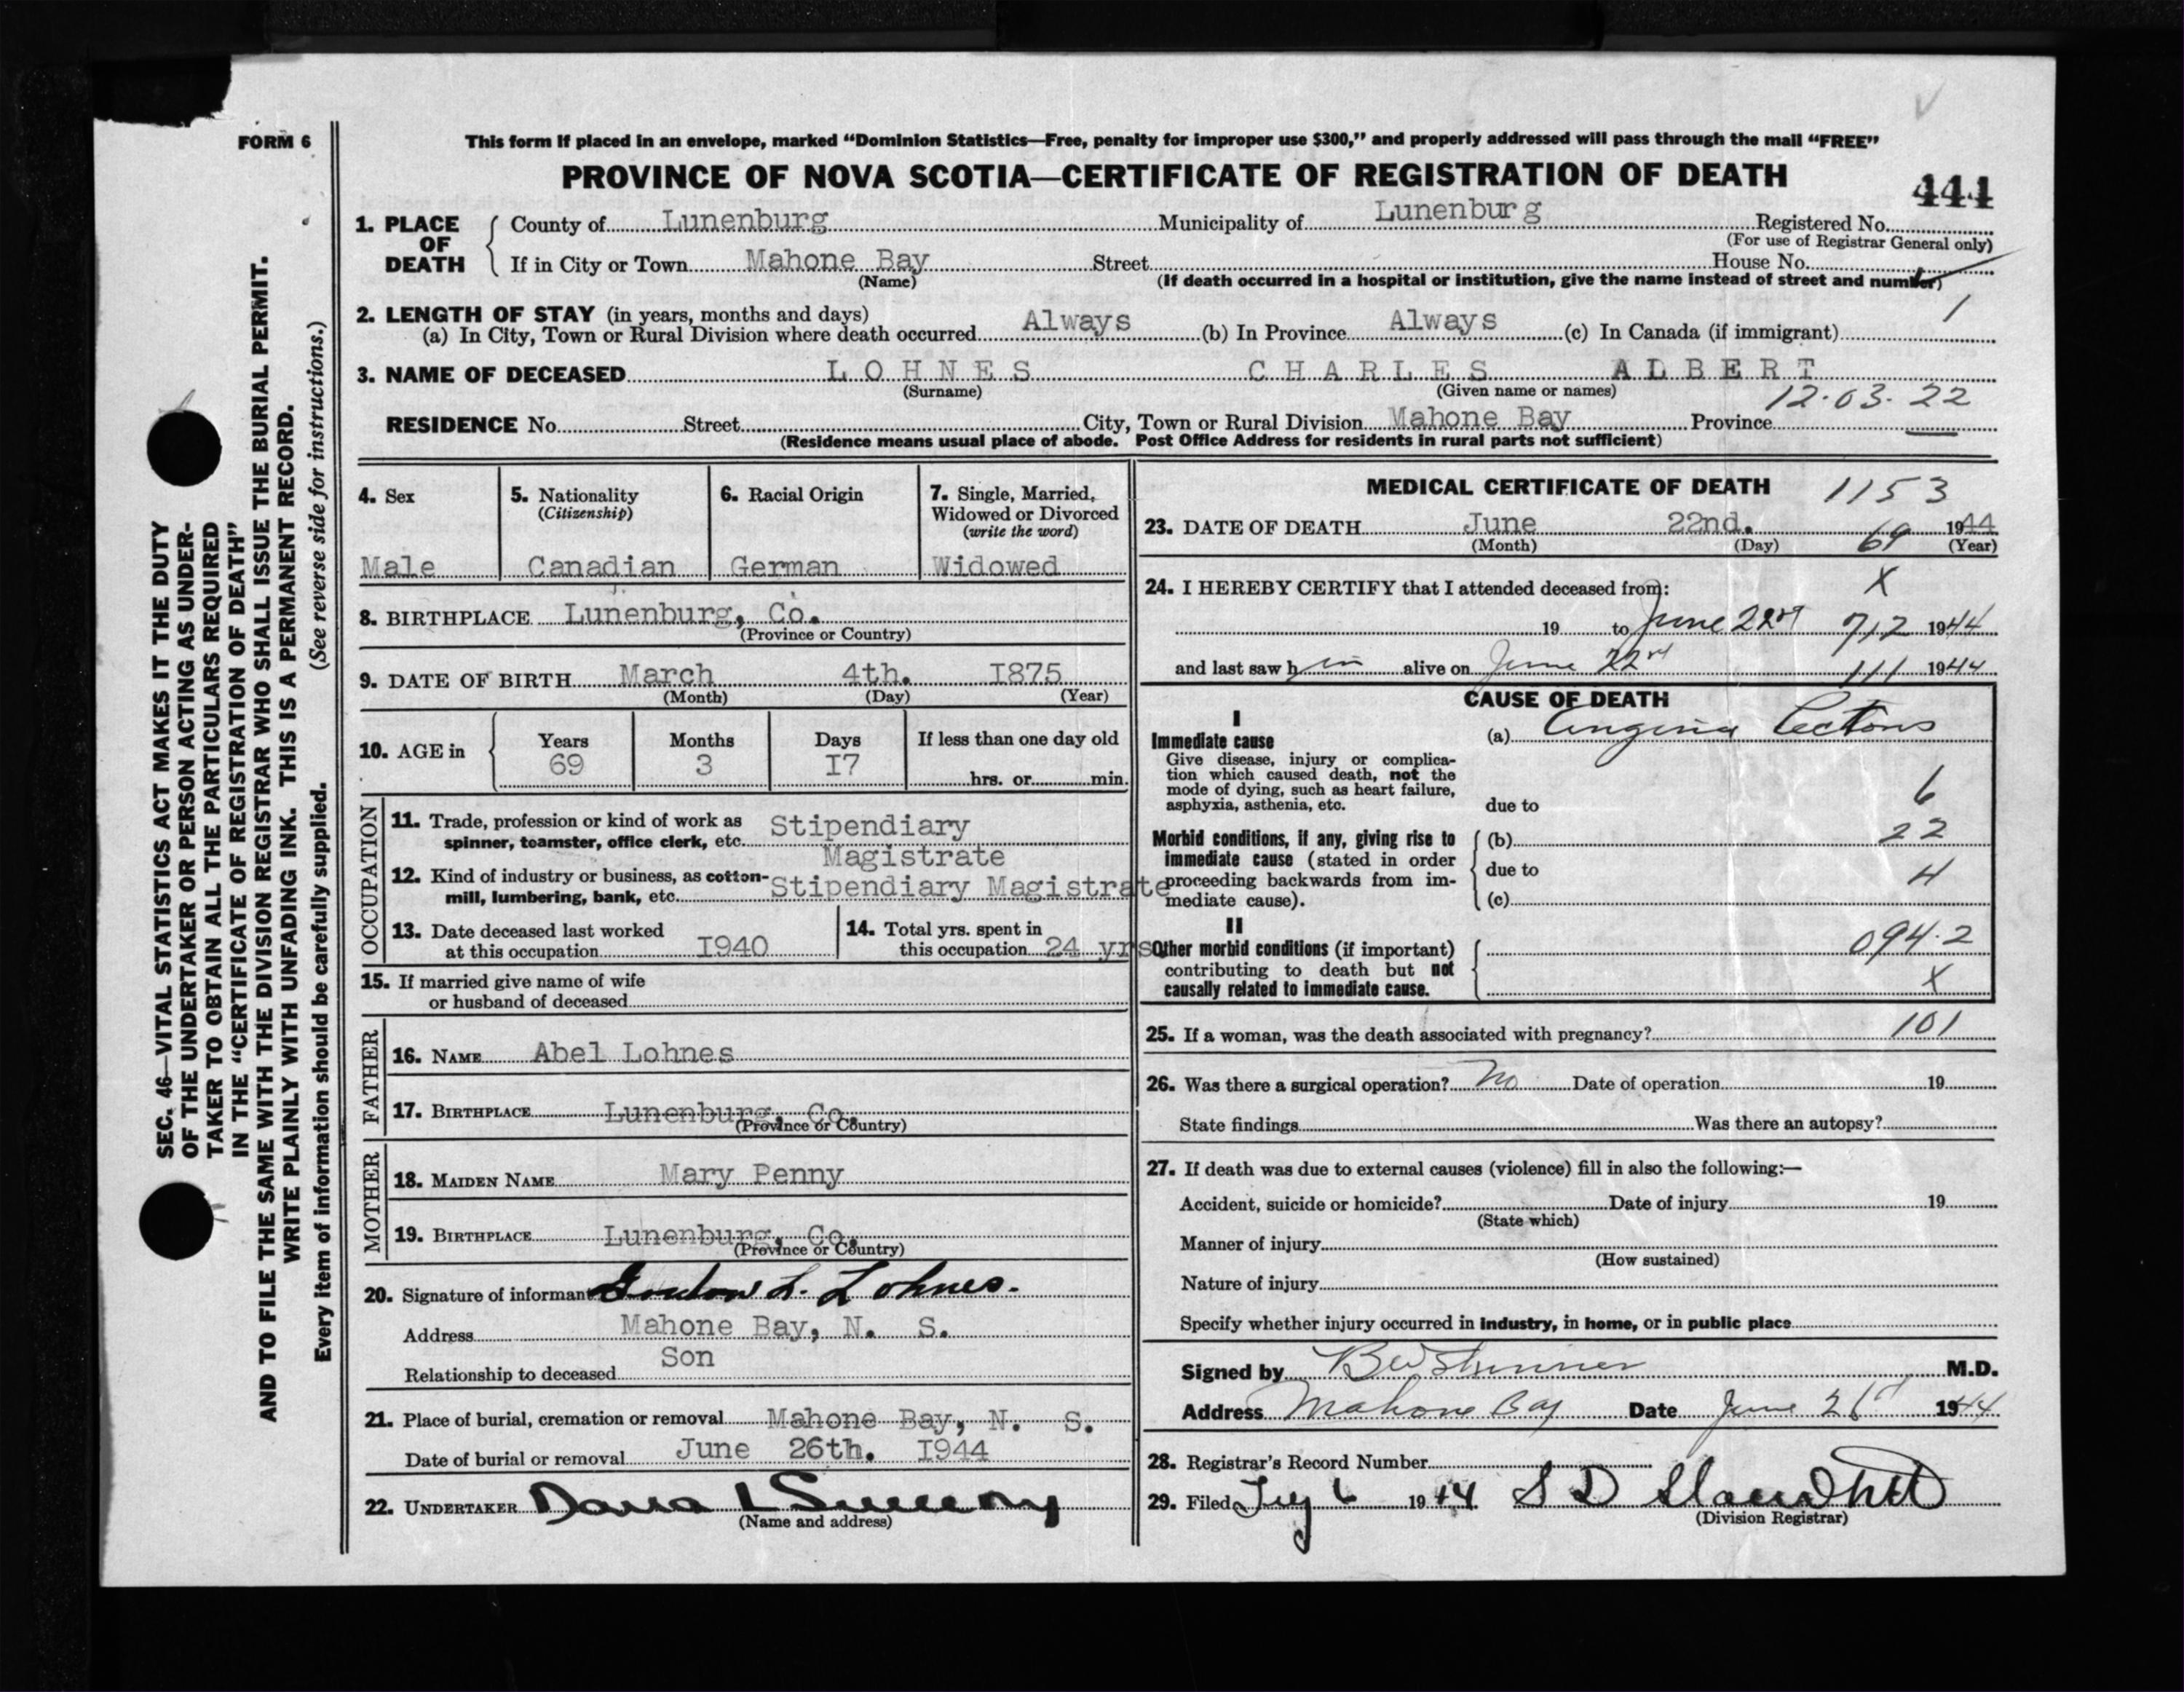 FORM 6
This form if placed in an envelope, marked "Dominion Statistics—Free, penalty for improper use $300," and properly addressed will pass through the mail "FREE"
PROVINCE OF NOVA SCOTIA—CERTIFICATE OF REGISTRATION OF DEATH
444
1. PLACE OF DEATH
County of Lunenburg Municipality of Lunenburg Registered No.
(For use of Registrar General only)
If in City or Town Mahone Bay Street House No.
(Name) (If death occurred in a hospital or institution, give the name instead of street and number)
2. LENGTH OF STAY (in years, months and days) 1
(a) In City, Town or Rural Division where death occurred Always (b) In Province Always (c) In Canada (if immigrant)
3. NAME OF DECEASED LOHNES CHARLES ALBERT
(Surname) (Given name or names)
12.03.22
RESIDENCE No. Street City, Town or Rural Division Mahone Bay Province
(Residence means usual place of abode. Post Office Address for residents in rural parts not sufficient)
4. Sex
Male
5. Nationality
(Citizenship)
Canadian
6. Racial Origin
German
7. Single, Married,
Widowed or Divorced
(write the word)
Widowed
8. BIRTHPLACE Lunenburg, Co.
(Province or Country)
9. DATE OF BIRTH March 4th. 1875
(Month) (Day) (Year)
10. AGE in
Years Months Days If less than one day old
69 3 17 hrs. or min.
OCCUPATION
11. Trade, profession or kind of work as Stipendiary
spinner, teamster, office clerk, etc.
Magistrate
12. Kind of industry or business, as cotton-
mill, lumbering, bank, etc. Stipendiary Magistrate
13. Date deceased last worked
at this occupation 1940
14. Total yrs. spent in
this occupation 24 yrs
15. If married give name of wife
or husband of deceased
FATHER
16. NAME Abel Lohnes
17. BIRTHPLACE Lunenburg, Co.
(Province or Country)
MOTHER
18. MAIDEN NAME Mary Penny
19. BIRTHPLACE Lunenburg, Co.
(Province or Country)
20. Signature of informant Gordon L. Lohnes.
Address Mahone Bay, N. S.
Relationship to deceased Son
21. Place of burial, cremation or removal Mahone Bay, N. S.
Date of burial or removal June 26th. 1944
22. UNDERTAKER
(Name and address)
MEDICAL CERTIFICATE OF DEATH 1153
23. DATE OF DEATH June 22nd. 1944
(Month) (Day) 69 (Year)
24. I HEREBY CERTIFY that I attended deceased from: X
19 to June 22nd 712 1944
and last saw h im alive on June 22nd 111 1944
CAUSE OF DEATH
I
Immediate cause
Give disease, injury or complica-
tion which caused death, not the
mode of dying, such as heart failure,
asphyxia, asthenia, etc.
(a) Angina Pectoris
6
due to
Morbid conditions, if any, giving rise to
immediate cause (stated in order
proceeding backwards from im-
mediate cause).
(b) 22
due to 4
(c)
II
Other morbid conditions (if important)
contributing to death but not
causally related to immediate cause.
094.2
X
25. If a woman, was the death associated with pregnancy? 101
26. Was there a surgical operation? No Date of operation 19
State findings Was there an autopsy?
27. If death was due to external causes (violence) fill in also the following:—
Accident, suicide or homicide? Date of injury 19
(State which)
Manner of injury
(How sustained)
Nature of injury
Specify whether injury occurred in industry, in home, or in public place
Signed by M.D.
Address Mahone Bay Date June 1944
28. Registrar's Record Number
29. Filed 6 1944 S D
(Division Registrar)
SEC. 46—VITAL STATISTICS ACT MAKES IT THE DUTY
OF THE UNDERTAKER OR PERSON ACTING AS UNDER-
TAKER TO OBTAIN ALL THE PARTICULARS REQUIRED
IN THE "CERTIFICATE OF REGISTRATION OF DEATH"
AND TO FILE THE SAME WITH THE DIVISION REGISTRAR WHO SHALL ISSUE THE BURIAL PERMIT.
WRITE PLAINLY WITH UNFADING INK. THIS IS A PERMANENT RECORD.
Every item of information should be carefully supplied. (See reverse side for instructions.)